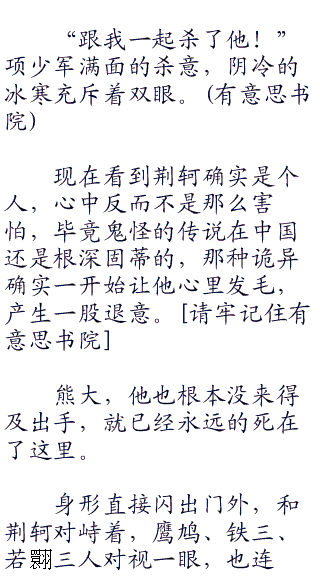 “跟我一起杀了他！”
项少军满面的杀意，阴冷的
冰寒充斥着双眼。(有意思书
院)
现在看到荆轲确实是个
人，心中反而不是那么害
怕，毕竟鬼怪的传说在中国
还是根深固蒂的，那种诡异
确实一开始让他心里发毛，
产生一股退意。[请牢记住有
意思书院]
熊大，他也根本没来得
及出手，就已经永远的死在
了这里。
身形直接闪出门外，和
荆轲对峙着，鹰鸠、铁三、
若翾三人对视一眼，也连